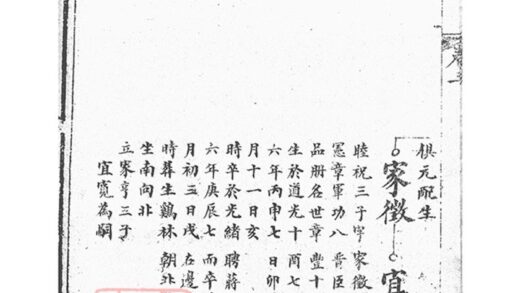 卷一
棋元配生
家徵 宜
睦祝三子字 家徵
憲章軍功八 晉臣
品冊名世章 豐十
生於道光十 酉七
六年丙申七 日卯
月十一日亥
時卒於光緒 聘蔣
六年庚辰七 而卒
月初三日戌 在邊
時葬生鷄林 朝北
坐南向北
立家亨三子
宜寬為嗣